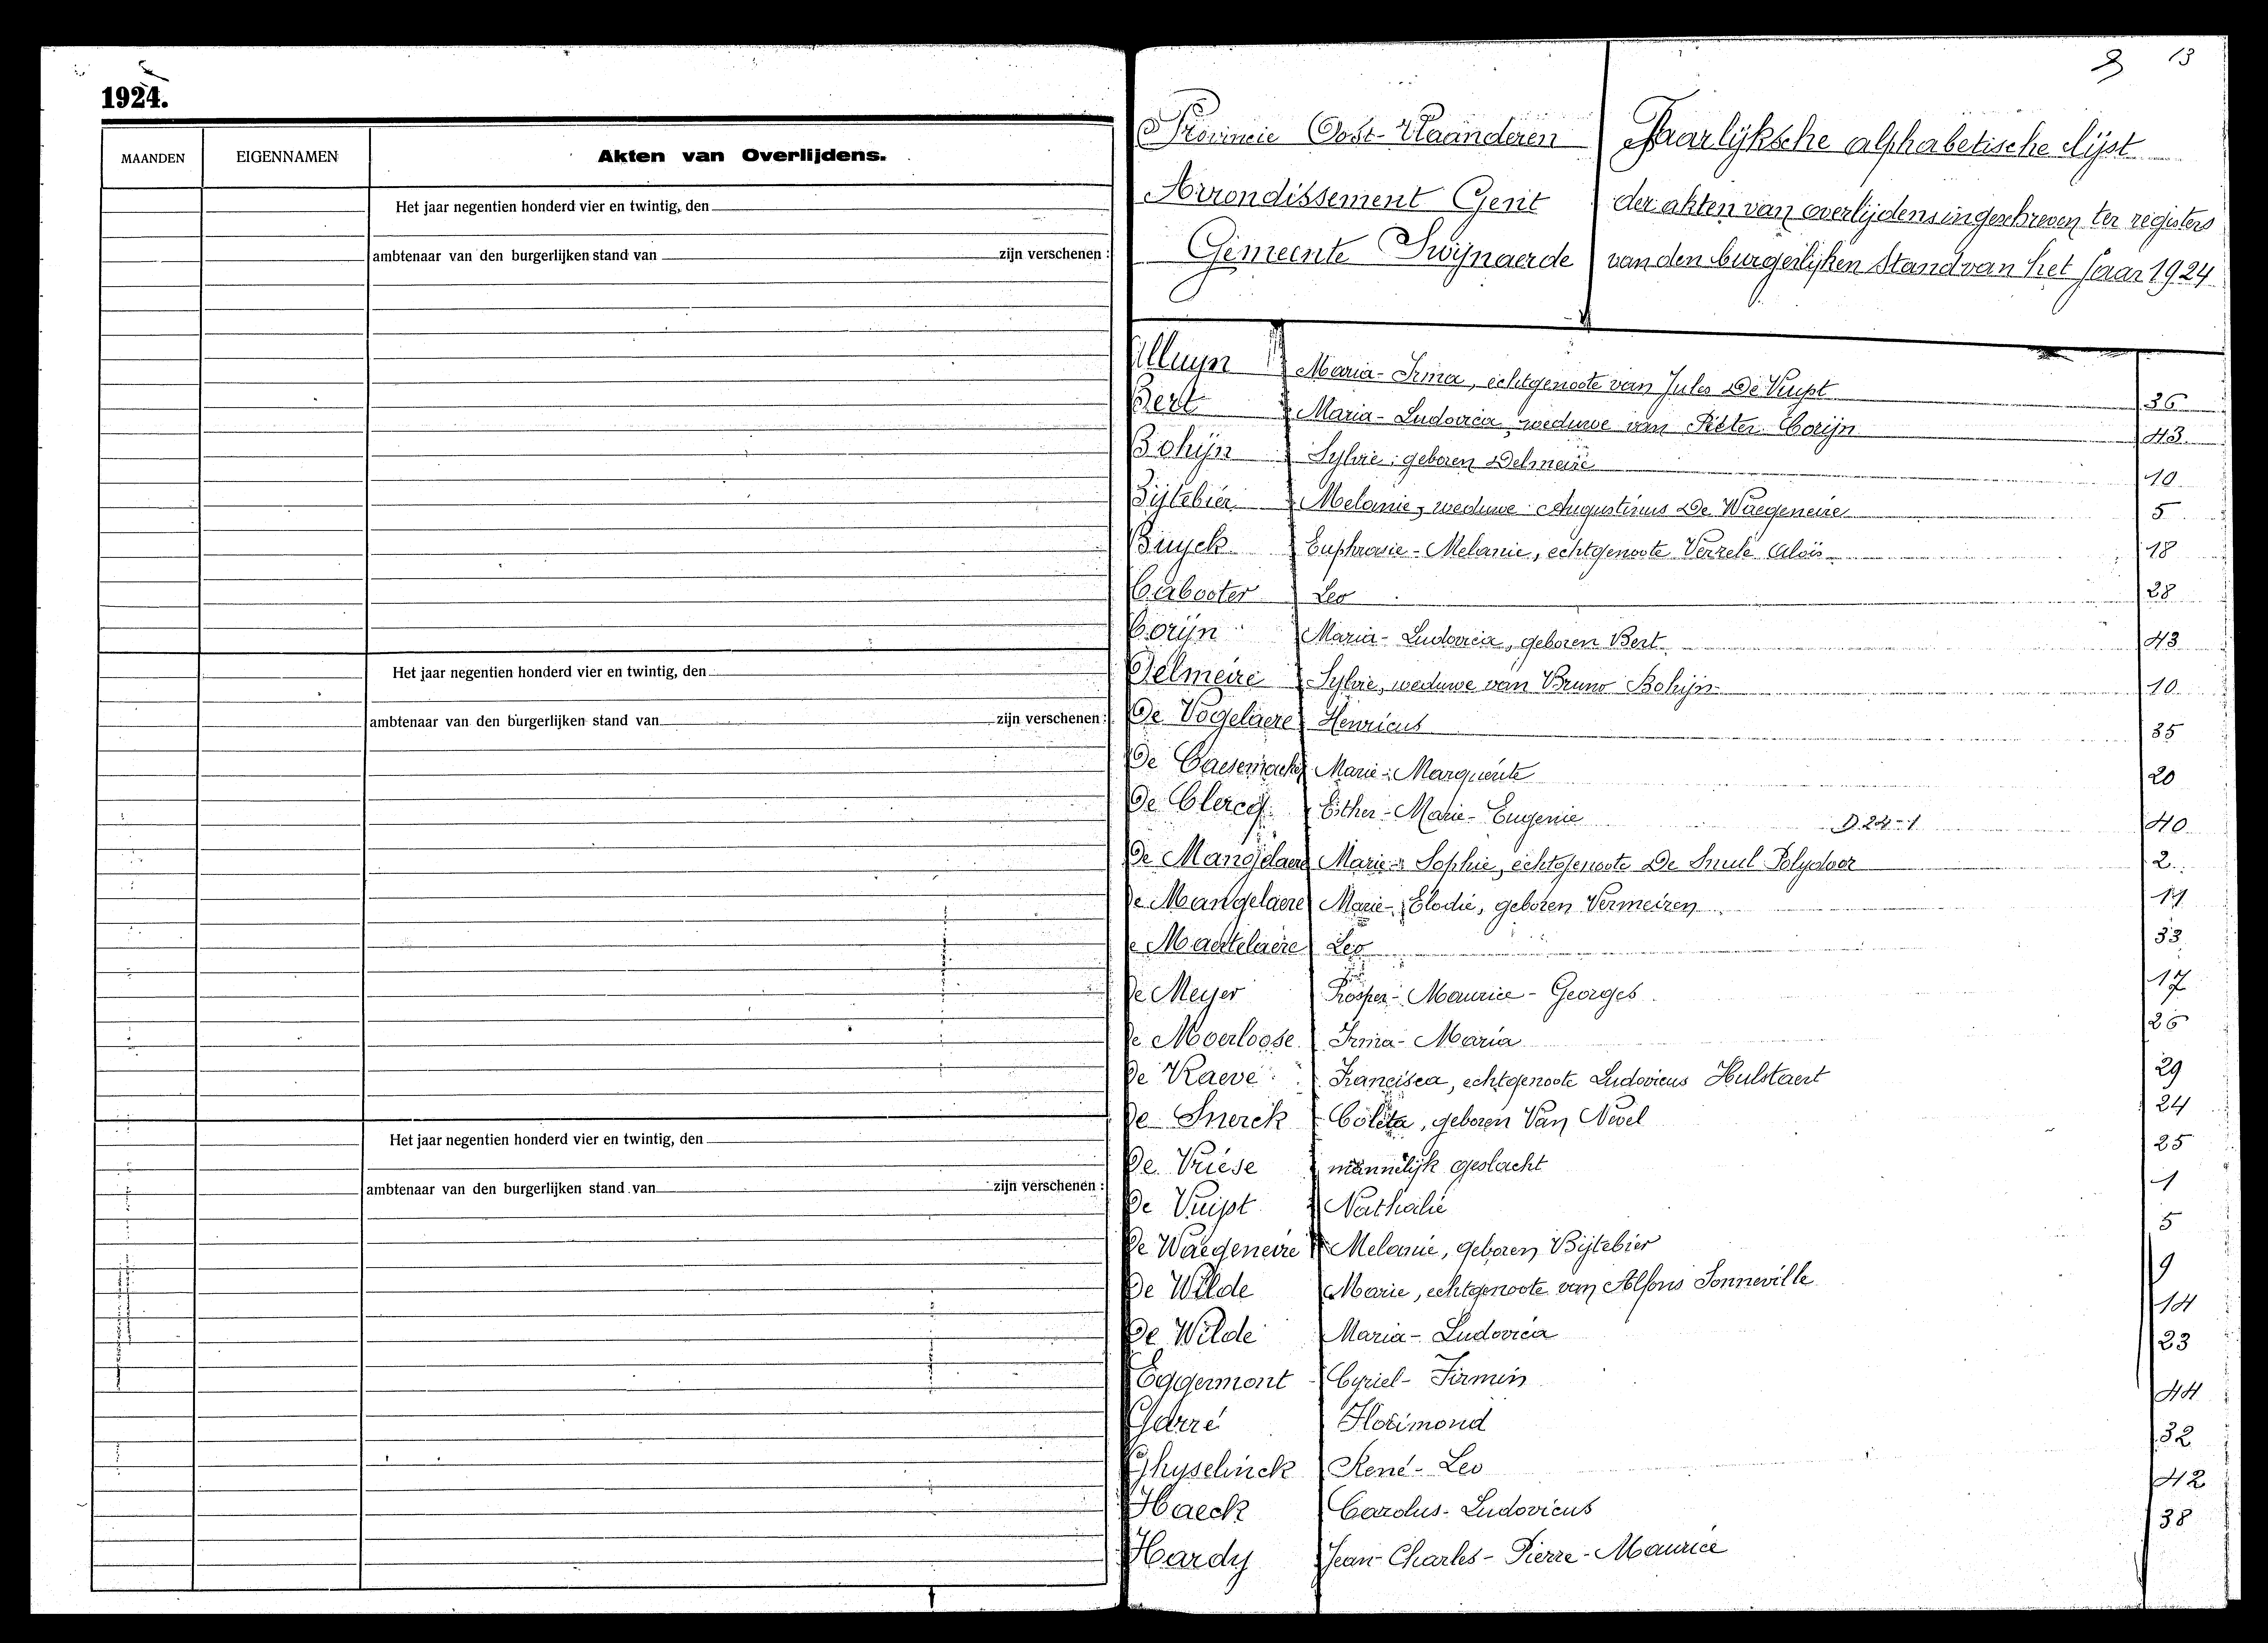 1924.
MAANDEN EIGENNAMEN Akten van Overlijdens.
Het jaar negentien honderd vier en twintig, den
ambtenaar van den burgerlijken stand van zijn verschenen :
Het jaar negentien honderd vier en twintig, den
ambtenaar van den burgerlijken stand van zijn verschenen :
Het jaar negentien honderd vier en twintig, den
ambtenaar van den burgerlijken stand van zijn verschenen :
13
Provincie Oost-Vlaanderen
Arrondissement Gent
Gemeente Swijnaerde
Jaarlijksche alphabetische lijst
der akten van overlijdens ingeschreven ter registers
van den burgerlijken Stand van het Jaar 1924
Alluyn Maria-Irma, echtgenoote van Jules De Vuyst 36
Bert Maria-Ludovica weduwe van Pieter Corijn 43
Bohijn Sylvie geboren Delmeire 10
Bijtebier Melanie, weduwe Augustinus De Waegeneire 5
Buyck Euphrasie-Melanie, echtgenoote Verzele Aloïs 18
Cabooter Leo 28
Corijn Maria-Ludovica, geboren Bert 43
Delmeire Sylvie, weduwe van Bruno Bohijn 10
De Vogelaere Henricus 35
De Caesemacker Marie-Marguerite 20
De Clercq Esther-Marie-Eugenie D.24-1 40
De Mangelaere Marie-Sophie, echtgenoote De Smul Polydoor 2
De Mangelaere Marie-Elodie, geboren Vermeiren 11
De Martelaere Leo 33
De Meyer Prosper-Maurice-Georges 17
De Moerloose Irma-Maria 26
De Raeve Francisca, echtgenoote Ludovicus Hulstaert 29
De Snerck Coleta, geboren Van Nevel 24
De Vriese mannelijk geslacht 25
De Vuijst Nathalie 1
De Waegeneire Melanie, geboren Bijtebier 5
De Wilde Marie, echtgenoote van Alfons Sonneville 9
De Wilde Maria-Ludovica 14
Eggermont Cyriel-Firmin 23
Garré Florimond 44
Ghyselinck René-Leo 32
Haeck Carolus-Ludovicus 42
Hardy Jean-Charles-Pierre-Maurice 38